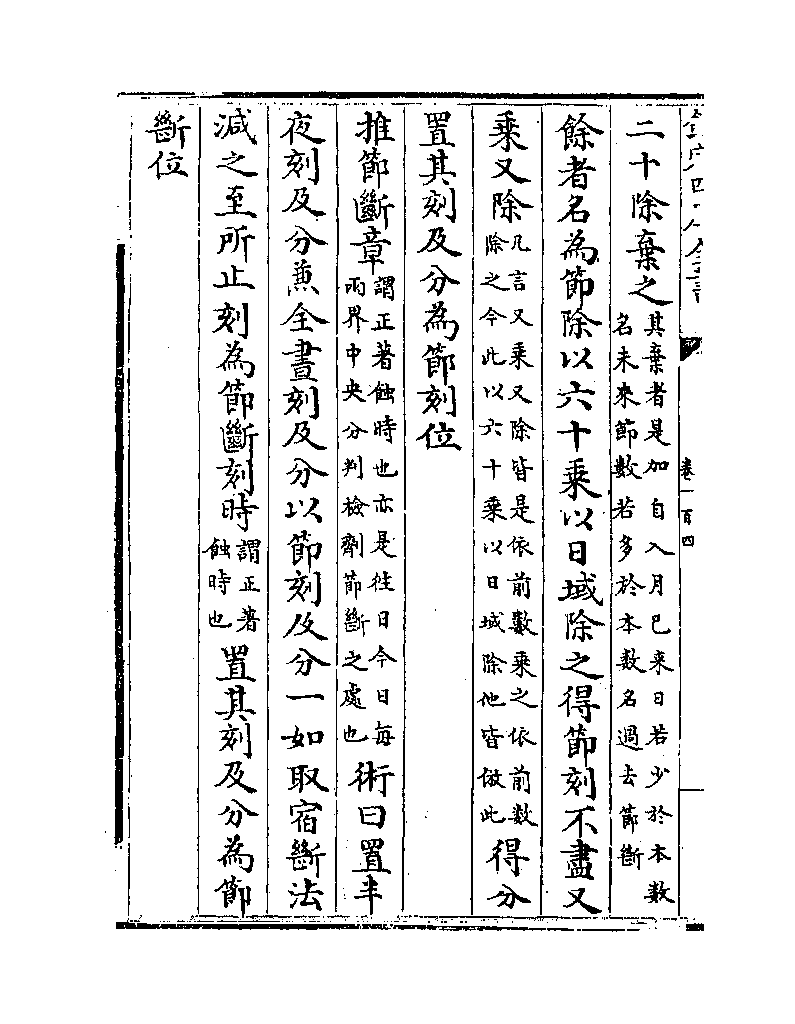 二十除棄之其棄者是加自入月已来日若少於本數名未來節數若多於本數名過去節斷
餘者名為節除以六十乘以日域除之得節刻不盡又
乘又除凡言又乘又除皆是依前數乘之依前數除之今此以六十乘以日域除他皆倣此得分
置其刻及分為節刻位
推節斷章謂正著蝕時也亦是往日今日每兩界中央分判檢劑節斷之處也術曰置半
夜刻及分兼全晝刻及分以節刻及分一如取宿斷法
減之至所止刻為節斷刻時謂正著蝕時也置其刻及分為節
斷位
卷一百四